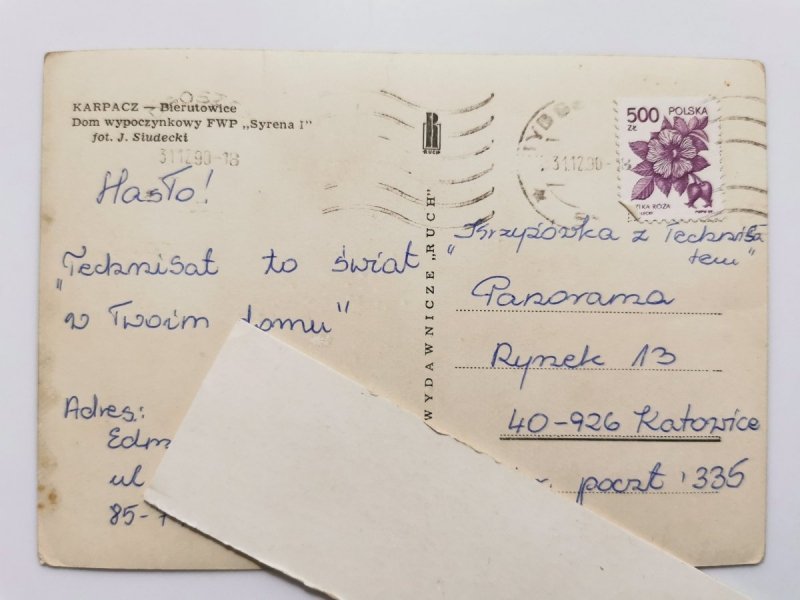 KARPACZ — Bierutowice
Dom wypoczynkowy FWP „Syrena I"
fot. J. Siudecki
31.12.90-18
Hasło!
"Technisat to świat
w Twoim domu"
Adres:
Edm
ul
85-7
WYDAWNICZE „RUCH"
RUCH
YDG
31.12.90-18
500
ZŁ
POLSKA
"Krzyżówka z Technisa
tem"
Panorama
Rynek 13
40-926 Katowice
poczt 335